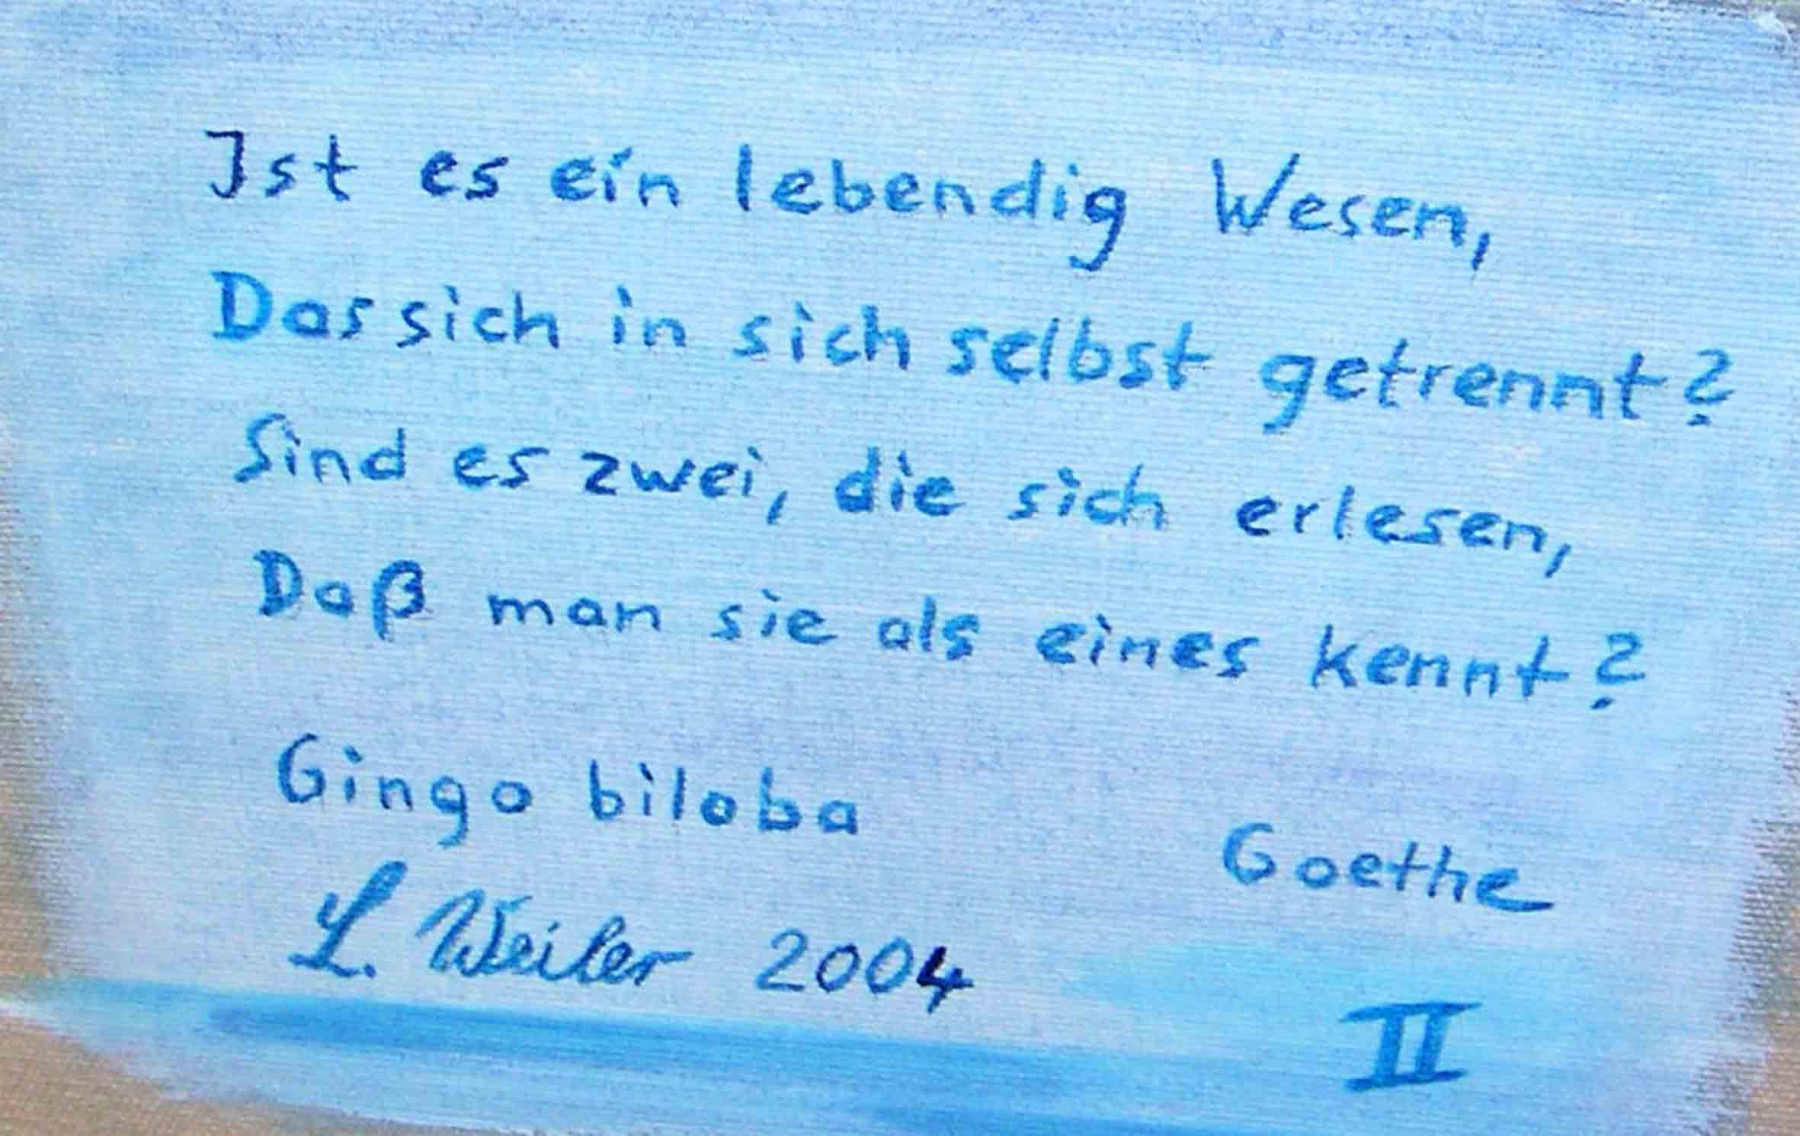 Ist es ein lebendig Wesen,
Das sich in sich selbst getrennt?
Sind es zwei, die sich erlesen,
Daß man sie als eines kennt?
Gingo biloba
Goethe
L. Weiler 2004
II